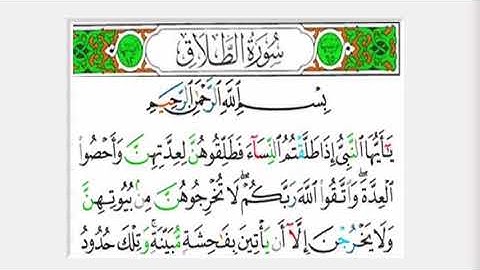 سُورَةُ الطَّلَاقِ
بِسْمِ اللَّهِ الرَّحْمَٰنِ الرَّحِيمِ
يَٰٓأَيُّهَا النَّبِيُّ إِذَا طَلَّقْتُمُ النِّسَآءَ فَطَلِّقُوهُنَّ لِعِدَّتِهِنَّ وَأَحْصُوا
الْعِدَّةَ ۖ وَاتَّقُوا اللَّهَ رَبَّكُمْ ۖ لَا تُخْرِجُوهُنَّ مِنۢ بُيُوتِهِنَّ
وَلَا يَخْرُجْنَ إِلَّآ أَن يَأْتِينَ بِفَٰحِشَةٍ مُّبَيِّنَةٍ ۚ وَتِلْكَ حُدُودُ